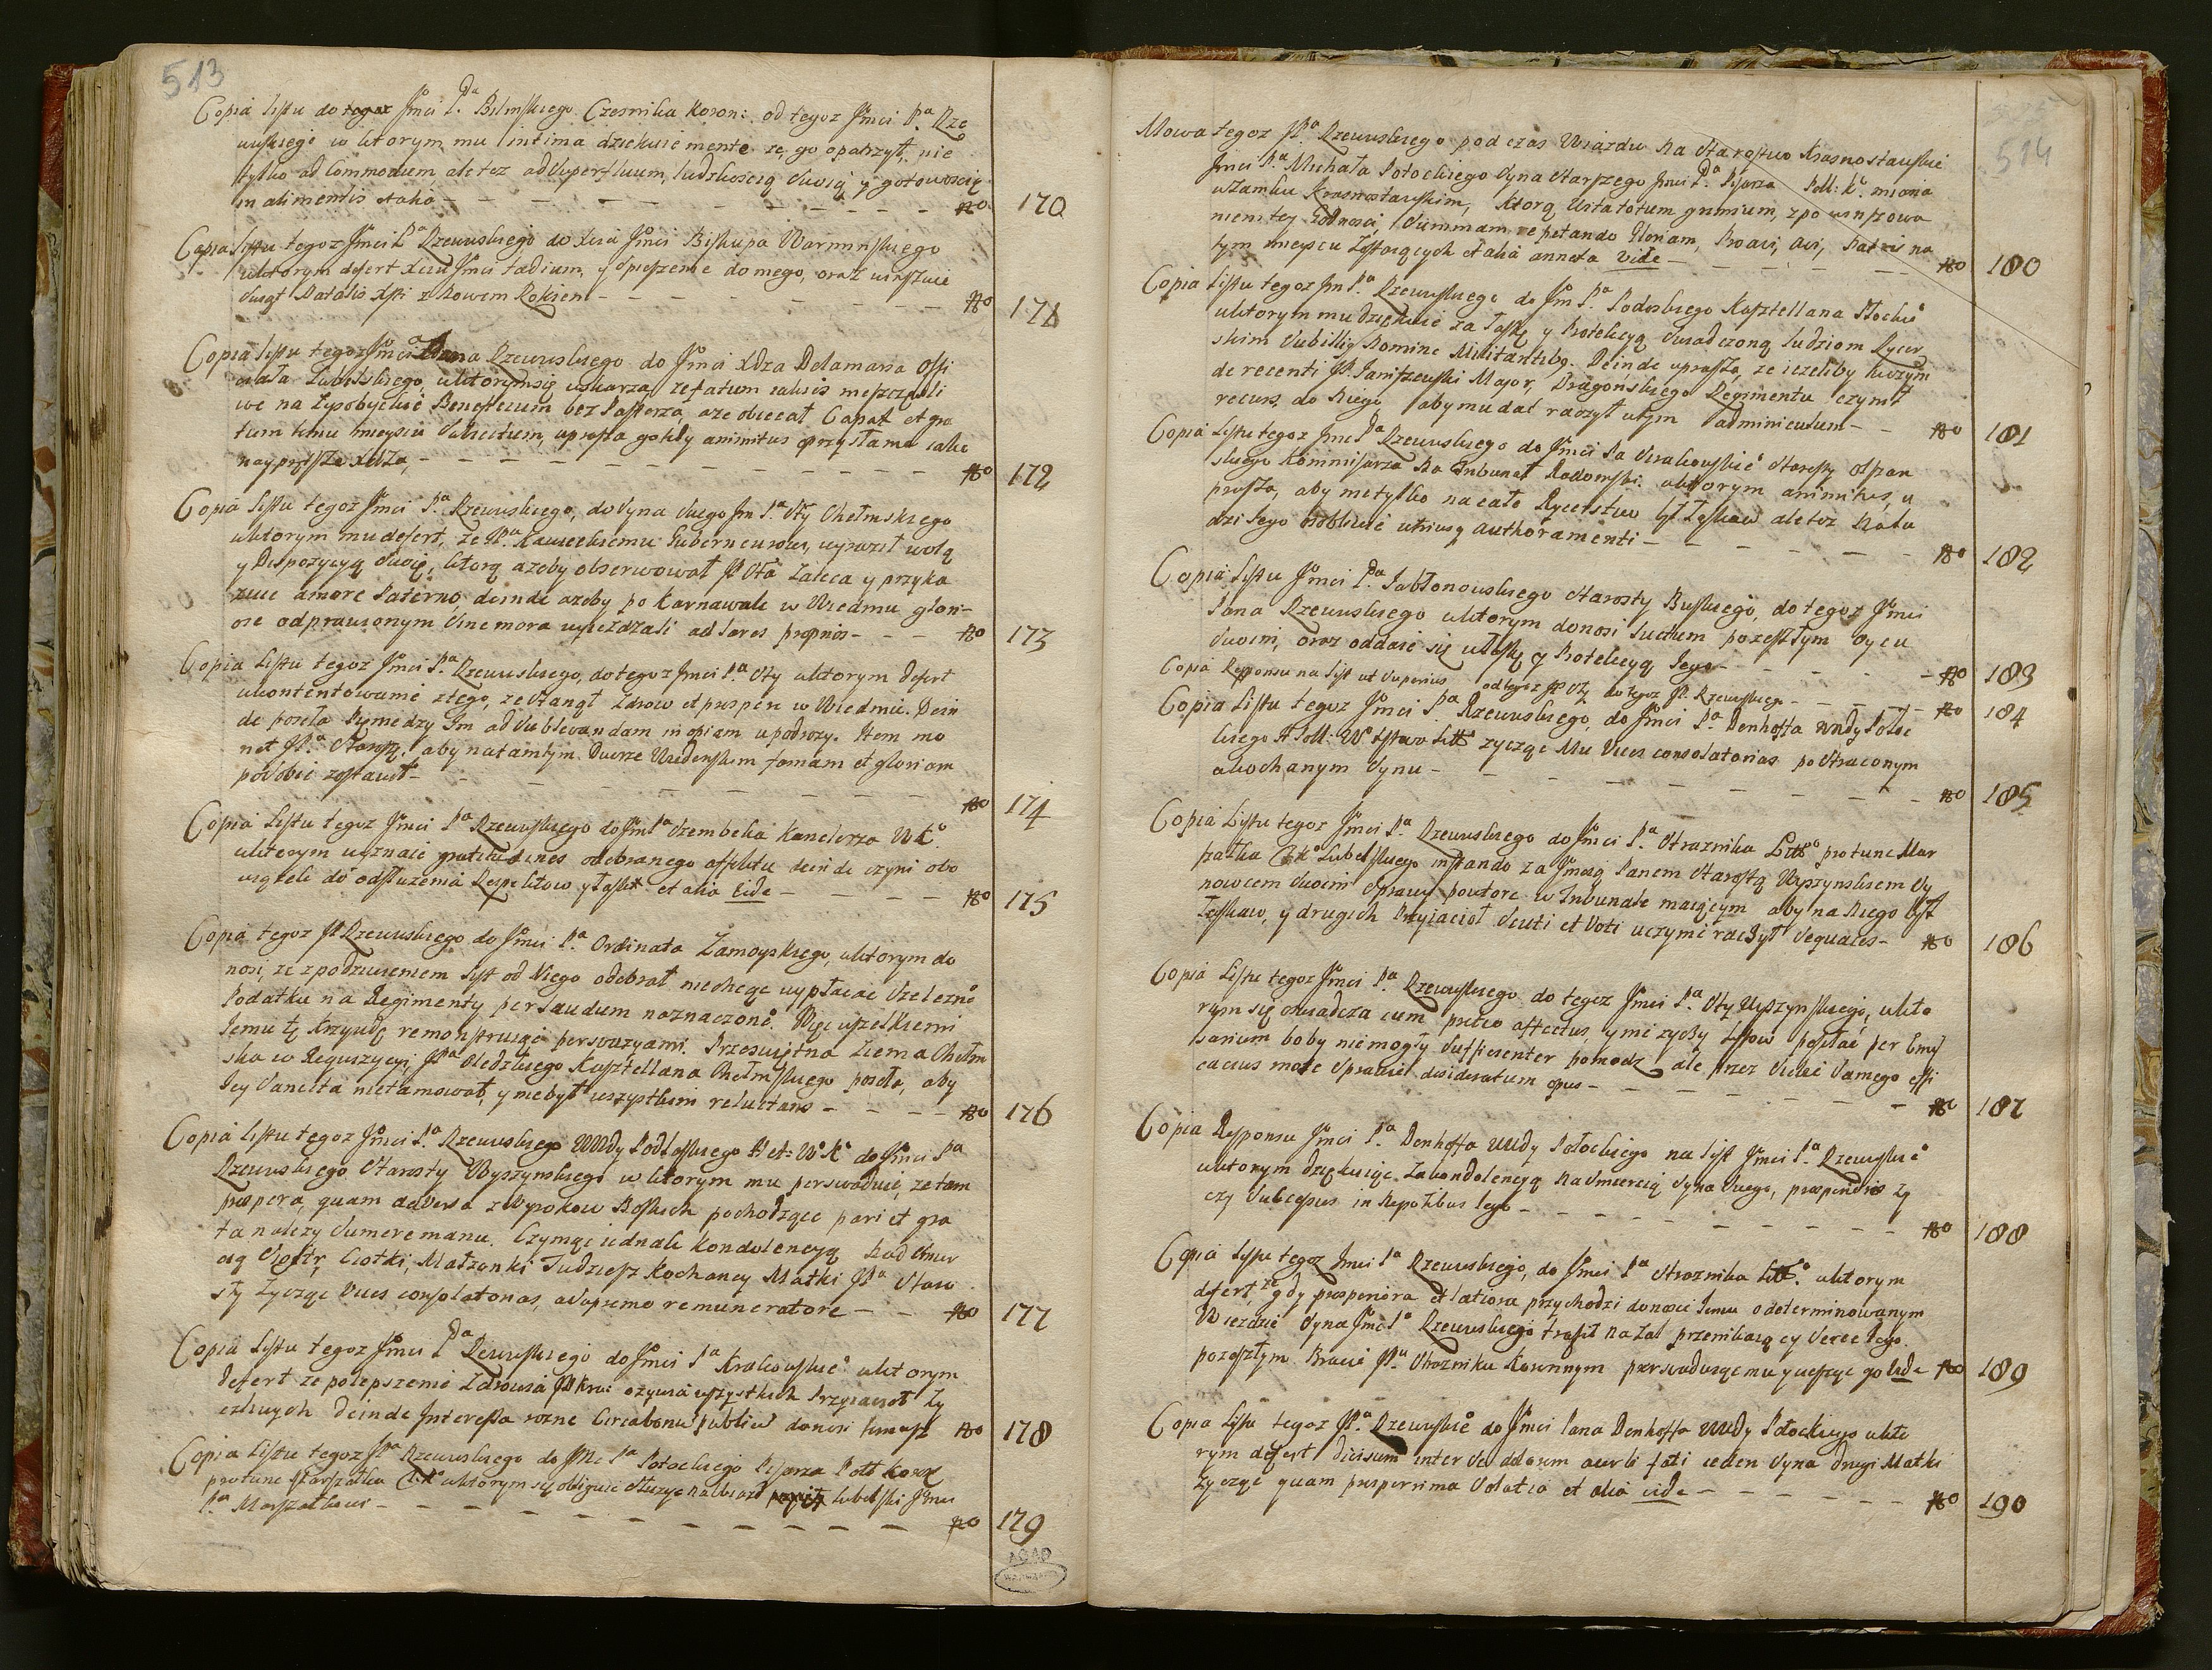 513
Copia listu do tegoz Jmci Pa Bilinskiego Czesnika Koron: od tegoz Jmci Pa Rze
wuskiego w ktorym mu intima dziękuie mente ze go opatrzył, nie
tylko ad Commodum, ale tez ad Superfluum, ludzkością swoią y gotowością
in alimentis et alia — No 170
Copia listu tegoz Jmci Pa Rzewuskiego do Xcia Jmci Biskupa Warminskiego
wktorym defert Xciu Jmci tadium, y Spieszenie do mego, oraz winszuie
Swiąt Natalis Xsti z Nowem Rokiem — No 171
Copia listu tegoz Jmci Pana Rzewuskiego do Jmci Xdza Delamara Offi
ciała Lubelskiego, wktorym się uskarza, ze fatum
we na Beneficium bez Pasterza, aze obiecał Capax et gra
tum temu mieyscu Subiectum, uprasza gokdy animitus oprzysłanie iako
nayprętsze Xdza, — No 172
Copia listu tegoz Jmci Pa Rzewuskiego, do Syna Swego Jm Pa Sty Chełmskiego
wktorym mu defert, ze JPa Gubernerowi, wyraził wolą
y Dispozycyą Swoię, ktorą azeby obserwował JP Sta Zaleca y przyka
zuie amore Paterno, deinde azeby po Karnawale w Wiedniu glori-
ose odprawionym Sine mora wyiezdzali ad lares proprios — No 173
Copia listu tegoz Jmci Pa Rzewuskiego, do tegoz Jmci Pa Sty wktorym defert
ukontentowanie ztego, ze Stanął Zdrow et prospere w Wiedniu. Dein
de poseła Pięniedzy Im ad Sublevandam inopiam w podrozy. Item mo
net JPa Starostę, aby na tamtym Dworze Wiedenskim famam et gloriam
posobie zostawił — No 174
Copia Listu tegoz Jmci Pa Rzewuskiego do Jm Pa Szembeka Kanclerza W K.
wktorym wyznaie gratitudines odebranego affektu deinde czyni obo
wiązek do odsłuzenia Respektow y Łask et alia vide — No 175
Copia tegoz JP Rzewuskiego do Jmci Pa Ordinata Zamoyskiego, wktorym do
nosi, ze zpodziwieniem list od Niego odebrał niechcąc wypłacac Szelezne
Podatku na Regimenty per laudum naznaczone. Więc wszelkiemi
Jemu tę Krzywdę remonstruiąc perswazyami. Prześwietna Ziemia Chełm
ska w Rekwizycyi, JPa Oledzkiego Kasztellana Chełmskiego poseła, aby
Jey Sancita nietamował, y niebył wszystkim reluctans — No 176
Copia listu tegoz Jmci Pa Rzewuskiego WWdy Podlaskiego Het: W K do Jmci Pa
Rzewuskiego Starosty Wyszynskiego w ktorym mu perswaduie, ze tam
prospera, quam adversa z Wyrokow Boskich pochodzące pari et gra
ta nalezy Sumere manu. Czyniąc iednak Kondolencyą nad Smier
cią Siostr Ciotki, Małzonki Tudziesz Kochaney Matki JPa Staro
sty Zycząc Vices consolatorias, a Supremo remuneratore — No 177
Copia Listu tegoz Jmci Pa Rzewuskiego do Jmci Pa Krakowskie wktorym
defert ze polepszenie Zdrowia JP Kra: ozywia wszystkich Przyiacioł Zy
czliwych deinde Interessa rozne Circa bonum publicum donosi — No 178
Copia Listu tegoz JPa Rzewuskiego do JMci Pa Potockiego Pisarza Poll: Koron
protunc Marszałka wktorym się obliguie słuzyc na wiazd Lubelski Jmci
Pa Marszałkowi — No 179
514
Mowa tegoz JPa Rzewuskiego podczas Wiazdu na Starostwo Krasnostawskie
Jmci Pa Michała Potockiego Syna Starszego Jmci Pa Pisarza Poll: K. miana
w Zamku Krasnostawskim, ktorą Witatotum gremium, zpowinszowa
niem tey Godnosci, Summam repetando Gloriam, Proavi, avi, Patris na
tym mieyscu Zostaiących et alia annexa vide — No 180
Copia Listu tegoz Jm Pa Rzewuskiego do Jm Pa Podoskiego Kasztellana Płockie
wktorym mu dziękuie za Łaskę y Protekcyą Swiadczoną ludziom Rycer
skim Sub illius Nomine Militantibus. Deinde uprasza, ze iezeliby w czym
de recenti JP Janiszewski Major, Dragonskiego Regimentu czynił
recurs, do Niego abymu dał raczył wtym adminiculum — No 181
Copia Listu tegoz Jmci Pa Rzewuskiego do Jmci Pa Krakowskie Starosty
skiego Kommissarza na Trybunał Radomski wktorym animitus, u
prasza, aby nietylko nacałe Rycerstwo był Łaskaw ale tez Nalu
dzi Jego osobliwie utriusque authoramenti — No 182
Copia Listu Jmci Pa Jabłonowskiego Starosty Buskiego, do tegoz Jmci
Pana Rzewuskiego wktorym donosi luctum pozeszłym Oycu
Swoim, oraz oddaie się właskę y Protekcyą Jego — No 183
Copia Responsu na list ut Superius od tegoz JP Sty do tegoz JP. Rzewuskiego — No 184
Copia Listu tegoz Jmci Pa Rzewuskiego, do Jmci Pa Denhoffa WWdy Połoc
kiego H Poll: W. Xstwa Litt zycząc Mu Vices consolatorias po Straconym
ukochanym Synu — No 185
Copia Listu tegoz Jmci Pa Rzewuskiego do Jmci Pa Straznika Litto protunc Mar
szałka Lubelskiego instando za Jmcią Panem Starostą Wyszynskiem Sy
nowcem Swoim Sprawę powtore w Trybunale maiącym aby na Niego był
Łaskaw, y drugich Przyiacioł Scuti et Voti uczynic raczył Sequaces — No 186
Copia Listu tegoz Jmci Pa Rzewuskiego do tegoz Jmci Pa Sty Wyszynskiego, wkto
rym się oswiadcza cum pretio affectus, ymi zyczy Listow posyłac per Emis
sarium boby niemogły Sufficienter pomodz ale przez Siebie Samego effi
cacius moze Sprawic desideratum opus — No 187
Copia Responsu Jmci Pa Denhoffa WWdy Połockiego na list Jmci Pa Rzewuskie
wktorym dziękuiąc Zakondolencyą Nad smiercią Syna Swego, prosperioris zy
czy Successus in Nepotibus Jego — No 188
Copia Listu tegoz Jmci Pa Rzewuskiego, do Jmci Pa Straznika Litt. wktorym
defert ze gdy prosperiora et latiora przychodzi donosic Jemu o determinowanym
Wiezdzie Syna Jmci Pa Rzewuskiego trafił na Zal przenikaiący Serce Jego.
pozeszłym Bracie JPa Strazniku Koronnym perswaduiąc mu y ciesząc go vide No 189
Copia Listu tegoz JPa Rzewuskie do Jmci Pana Denhoffa WWdy Połockiego wkto
rym defert divisum inter Se dolorem acerbi fati ieden Syna drugi Matki
Zycząc quam prosperrima Solatia et alia vide — No 190